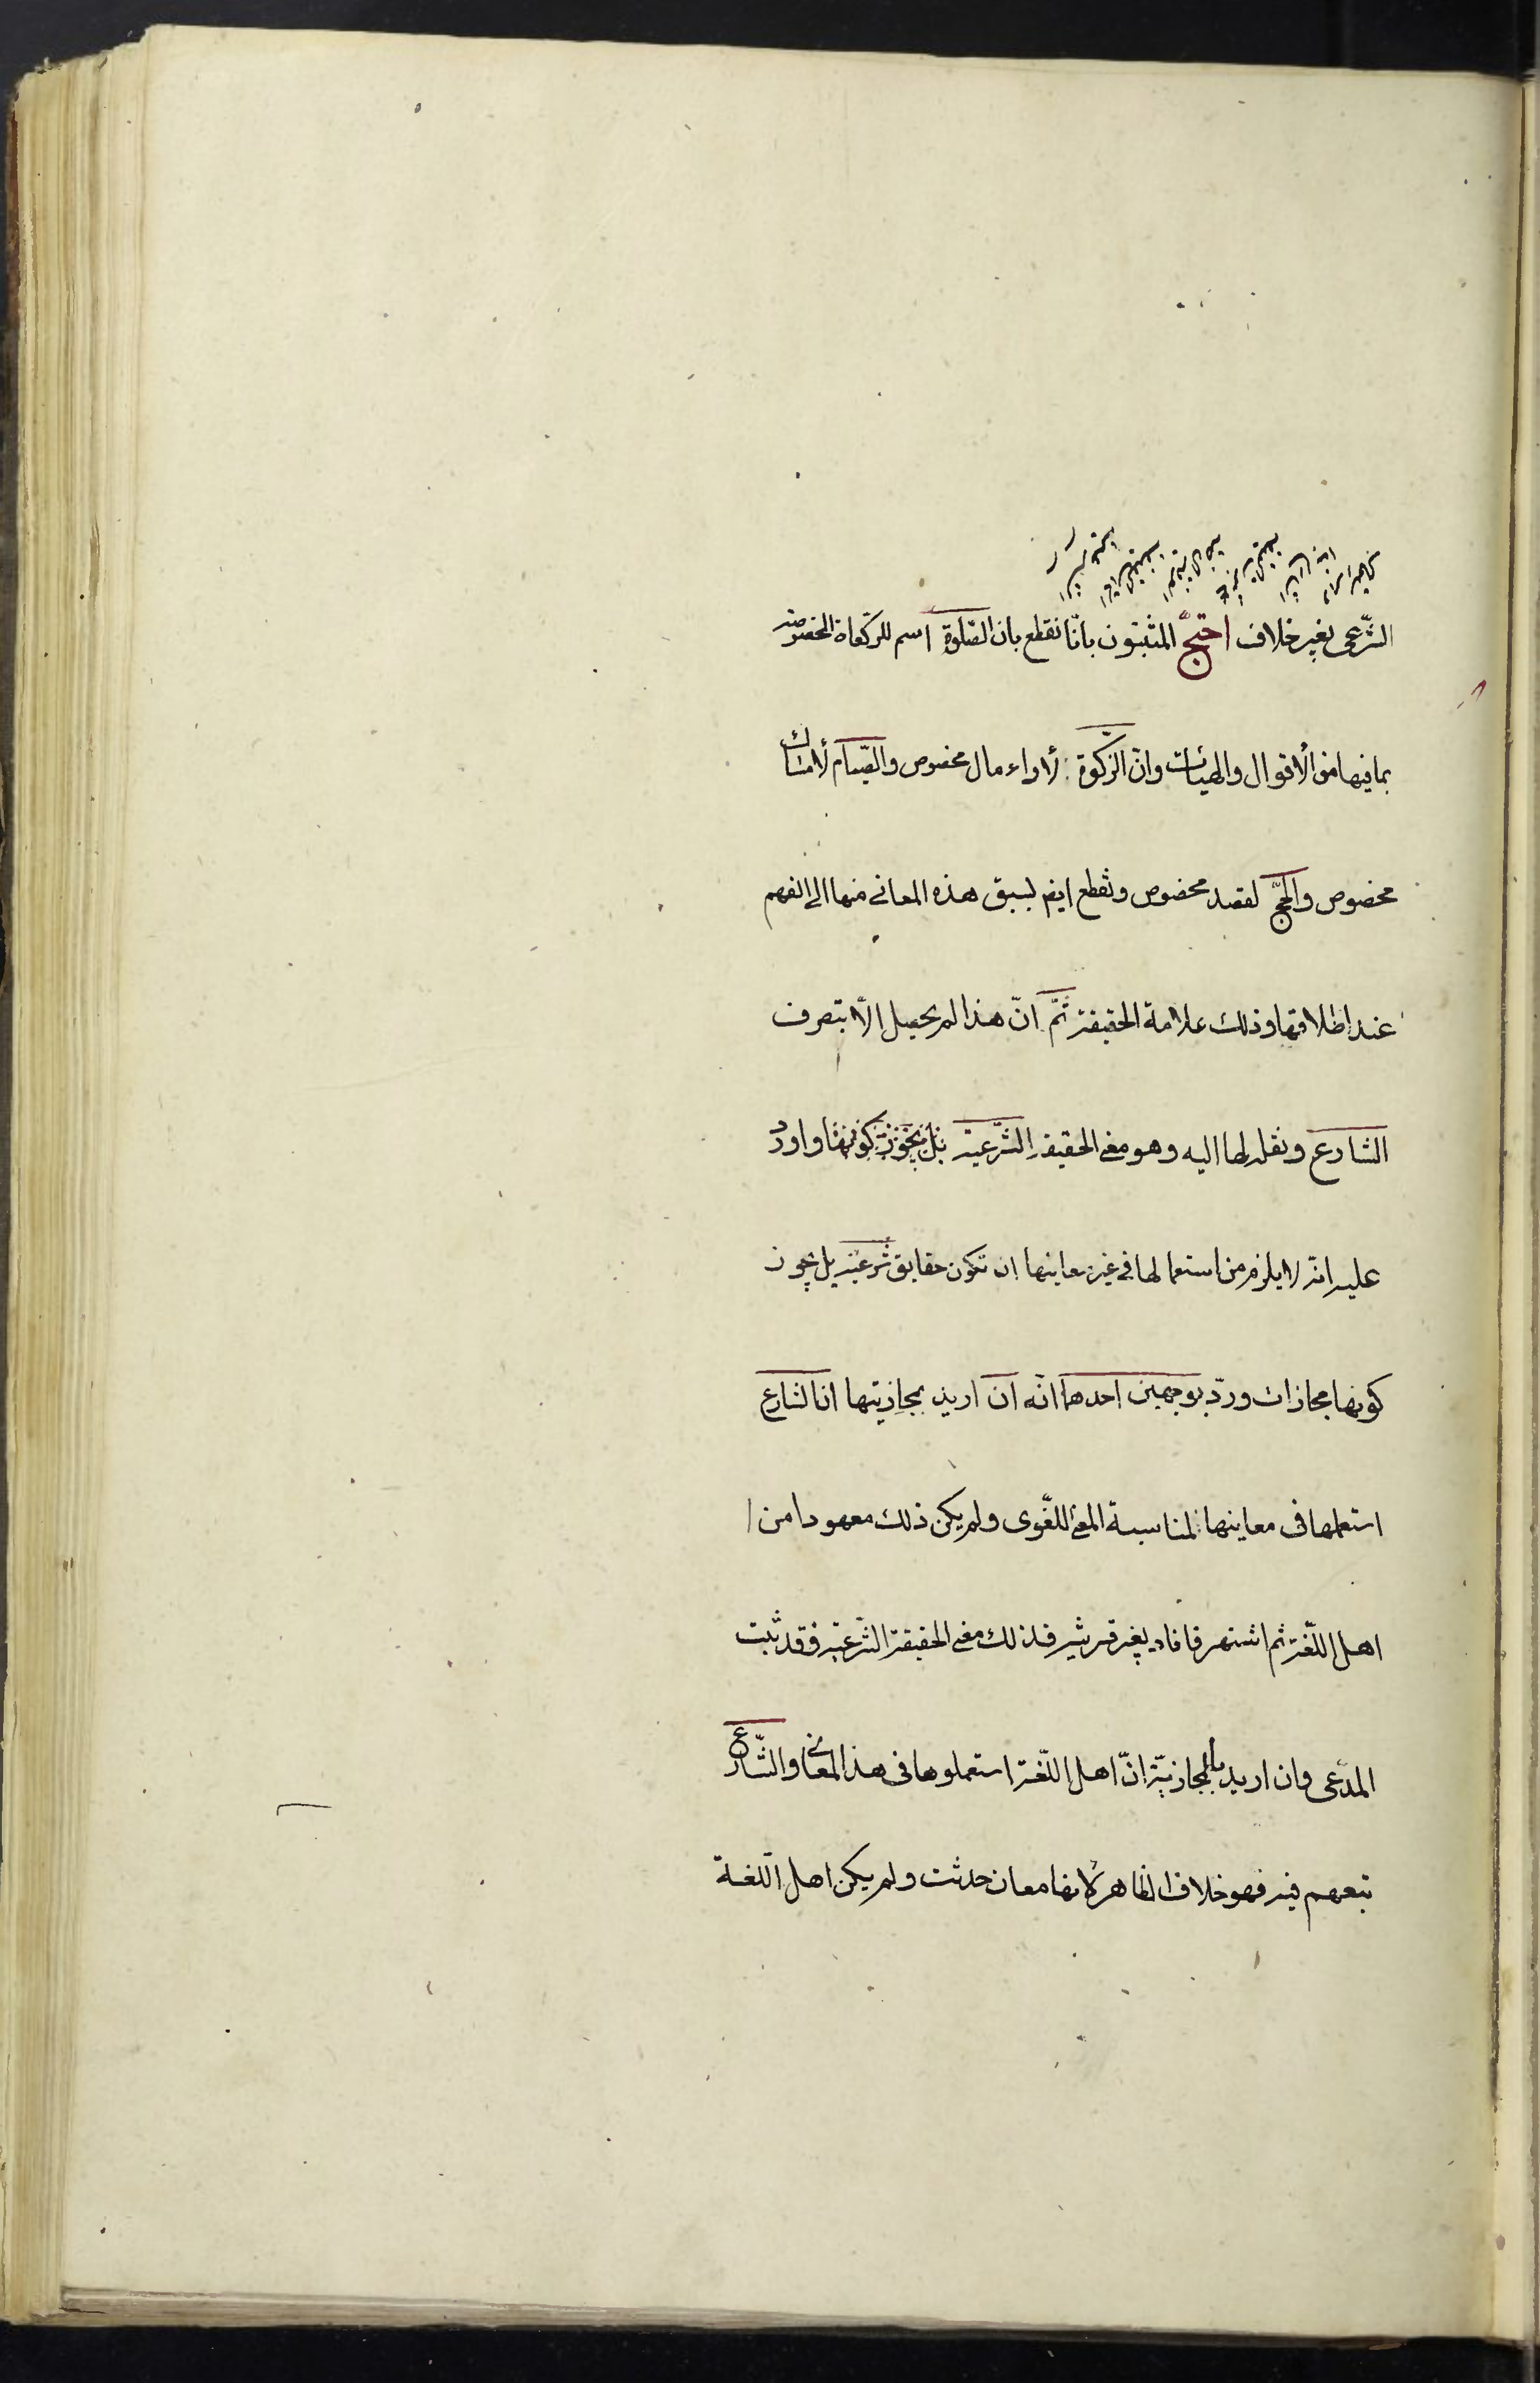 الشّرعى بغير خلاف احتجّ المثبتون بانّا نقطع بان الصّلوة اسم للركعاة المخصوصة
بما فيها من الأقوال والهيئات وانّ الزّكوة لأداء مال مخصوص والصّيام لأمساك
مخصوص والحجّ لقصد مخصوص ونقطع ايض لسبق هذه المعانى منها الى الفهم
عند اطلاقها وذلك علامة الحقيقة ثمّ انّ هذا لم يحصل الّا بتصرف
الشارع ونقله لها اليه وهو معنى الحقيقة الشّرعية بل يجوز كونها واورد
عليه انّه لا يلزم من استعمالها فى غير معاينها ان تكون حقايق شرعيّة بل يجوز
كونها مجازات وردّ بوجهين احدهما انّه ان اريد بمجازيتها ان الشارع
استعلمها فى معاينها لمناسبة المعنى اللغّوى ولم يكن ذلك معهودا من
اهل اللّغة ثم اشتهر فافاد بغير قرينه فذلك معنى الحقيقة الشّرعيّة فقد ثبت
المدّعى وان اريد بالمجازيّة انّ اهل اللّغة استعملوها فى هذ المعانى والشّارع
تبعهم فيه فهو خلاف الظاهر لأنها معان حدثت ولم يكن اهل اللّغة